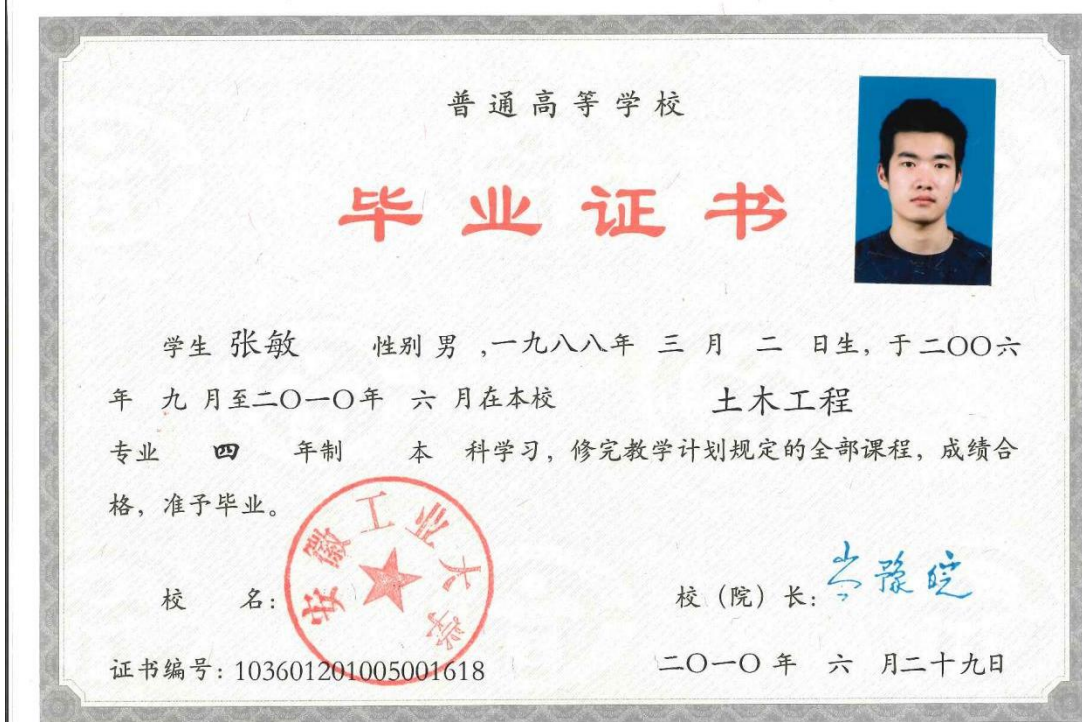 普通高等学校
毕业证书
学生 张敏 性别 男 ,一九八八年 三 月 二 日生, 于二〇〇六
年 九 月至二〇一〇年 六 月在本校 土木工程
专业 四 年制 本 科学习, 修完教学计划规定的全部课程, 成绩合
格, 准予毕业。
安徽工业大学
校 名:
校(院)长:
证书编号: 103601201005001618
二〇一〇 年 六 月二十九日